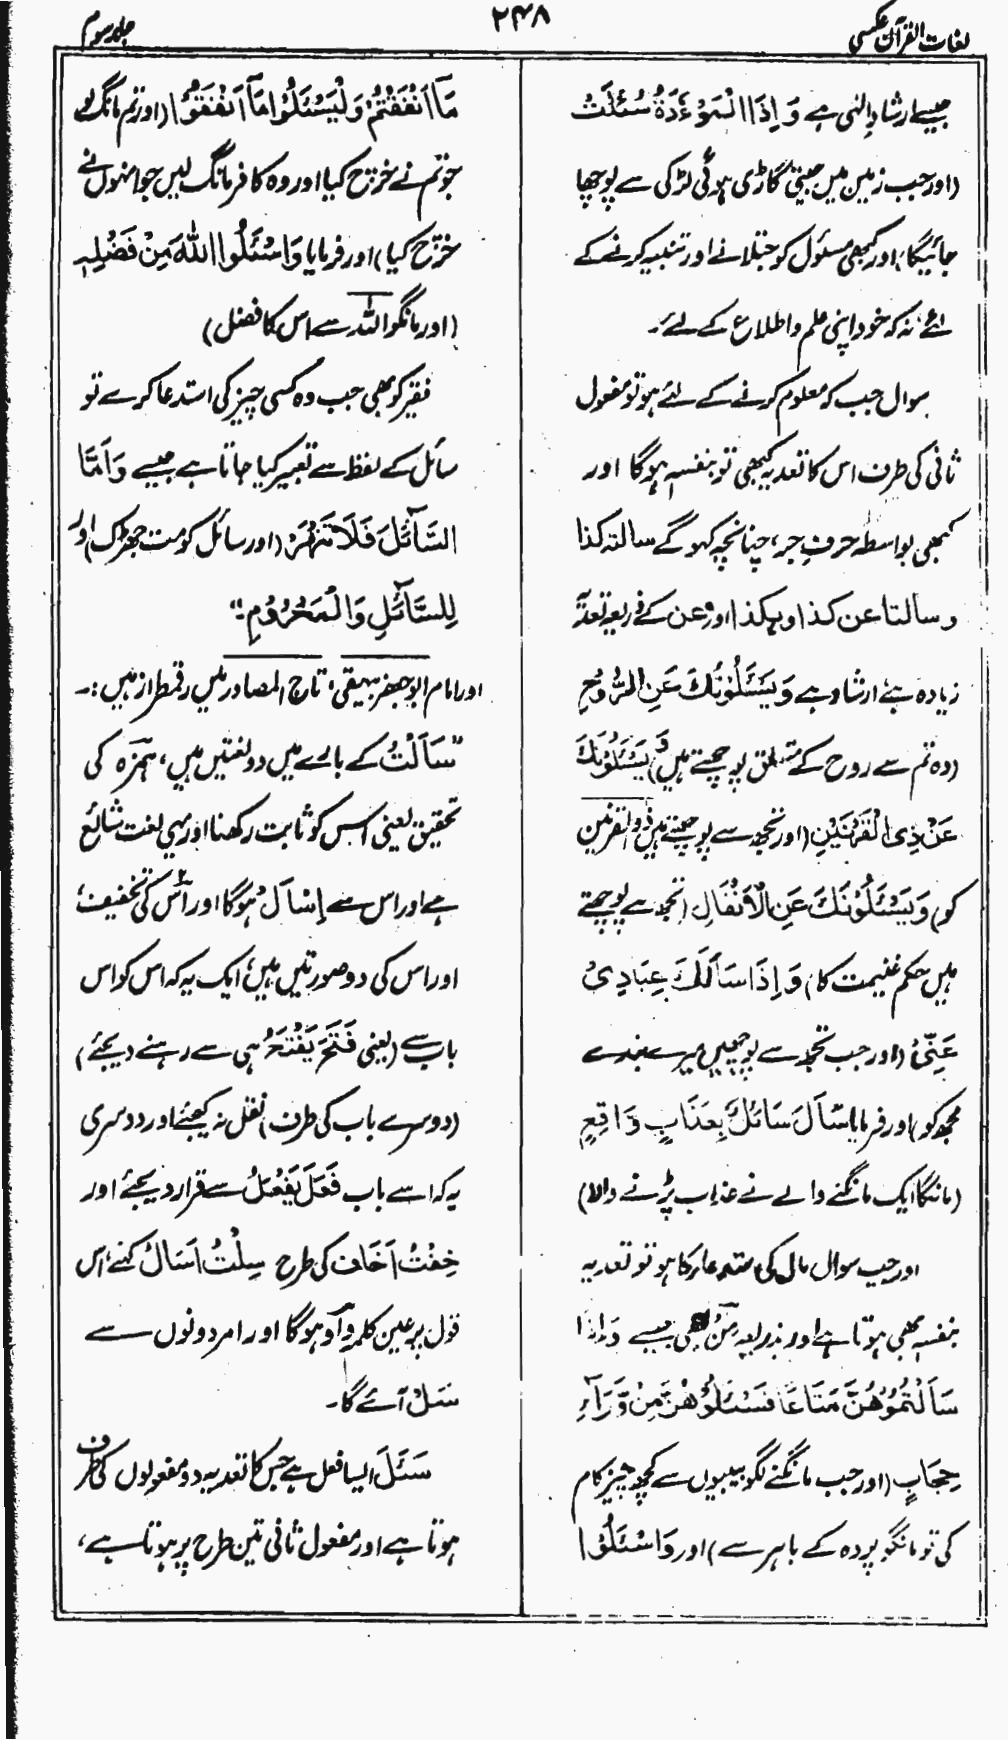 لغات القرآن عکسی
۲۴۸
جلد سوم
جیسے ارشادِ الٰہی ہے وَاِذَا الْمَوْءٗدَۃُ سُئِلَتْ
(اور جب زمین میں جیتی گاڑی ہوئی لڑکی سے پوچھا
جائیگا) اور کبھی مسئول کو جتلانے اور تنبیہ کرنے کے
لئے نہ کہ خود اپنی علم و اطلاع کے لئے۔
سوال جب کہ معلوم کرنے کے لئے ہو تو مفعول
ثانی کی طرف اس کا تعدیہ کبھی تو بنفسہ ہوگا اور
کبھی بواسطہ حرفِ جر، چنانچہ کہو گے سالتہ کذا
وسالتا عن کذا او بکذا اور عن کے ذریعہ تعدیہ
زیادہ ہے ارشاد ہے وَیَسْئَلُوْنَکَ عَنِ الرُّوْحِ
(وہ تم سے روح کے متعلق پوچھتے ہیں) یَسْئَلُوْنَکَ
عَنْ ذِی الْقَرْنَیْنِ (اور تجھ سے پوچھتے ہیں ذوالقرنین
کو) وَیَسْئَلُوْنَکَ عَنِ الْاَنْفَالِ (تجھ سے پوچھتے
ہیں حکم غنیمت کا) وَاِذَا سَاَلَکَ عِبَادِیْ
عَنِّیْ (اور جب تجھ سے پوچھیں میرے بندے
مجھ کو) اور فرمایا سَاَلَ سَائِلٌ بِعَذَابٍ وَّاقِعٍ
(مانگا ایک مانگنے والے نے عذاب پڑنے والا)
اور جب سوال مال کی استدعاء کا ہو تو تعدیہ
بنفسہٖ بھی ہوتا ہے اور بذریعہ مِنْ بھی جیسے وَاِذَا
سَاَلْتُمُوْھُنَّ مَتَاعًا فَسْئَلُوْھُنَّ مِنْ وَّرَآءِ
حِجَابٍ (اور جب مانگنے لگو بیبیوں سے کچھ چیز کام
کی تو مانگو پردہ کے باہر سے) اور وَاسْئَلُوْا
مَآ اَنْفَقْتُمْ وَلْیَسْئَلُوْا مَآ اَنْفَقُوْا (اور تم مانگ لو
جو تم نے خرچ کیا اور وہ کافر مانگ لیں جو انہوں نے
خرچ کیا) اور فرمایا وَاسْئَلُوا اللّٰہَ مِنْ فَضْلِہٖ
(اور مانگو اللہ سے اس کا فضل)
فقیر کو بھی جب وہ کسی چیز کی استدعا کرے تو
سائل کے لفظ سے تعبیر کیا جاتا ہے جیسے وَاَمَّا
السَّآئِلَ فَلَا تَنْھَرْ (اور سائل کو مت جھڑک) اور
لِلسَّآئِلِ وَالْمَحْرُوْمِ۔"
اور امام ابو جعفر بیہقی، تاج المصادر میں رقمطراز ہیں:۔
"سَاَلْتُ کے بارے میں دو لغتیں ہیں، ہمزہ کی
تحقیق یعنی اس کو ثابت رکھنا اور یہی لغت شائع
ہے اور اس سے اِسْاَلْ ہوگا اور اس کی تخفیف،
اور اس کی دو صورتیں ہیں، ایک یہ کہ اس کو اس
باب سے (یعنی فَتَحَ یَفْتَحُ ہی سے رہنے دیجئے)
(دوسرے باب کی طرف) نقل نہ کیجئے اور دوسری
یہ کہ اسے باب فَعِلَ یَفْعَلُ سے قرار دیجئے اور
خِفْتُ اَخَافُ کی طرح سِلْتُ اَسَالُ کہئے، اس
قول پر عین کلمہ واؤ ہوگا اور امر دونوں سے
سَلْ آئے گا۔
سَئَلَ ایسا فعل ہے جس کا تعدیہ دو مفعولوں کی طرف
ہوتا ہے اور مفعول ثانی تین طرح پر ہوتا ہے،